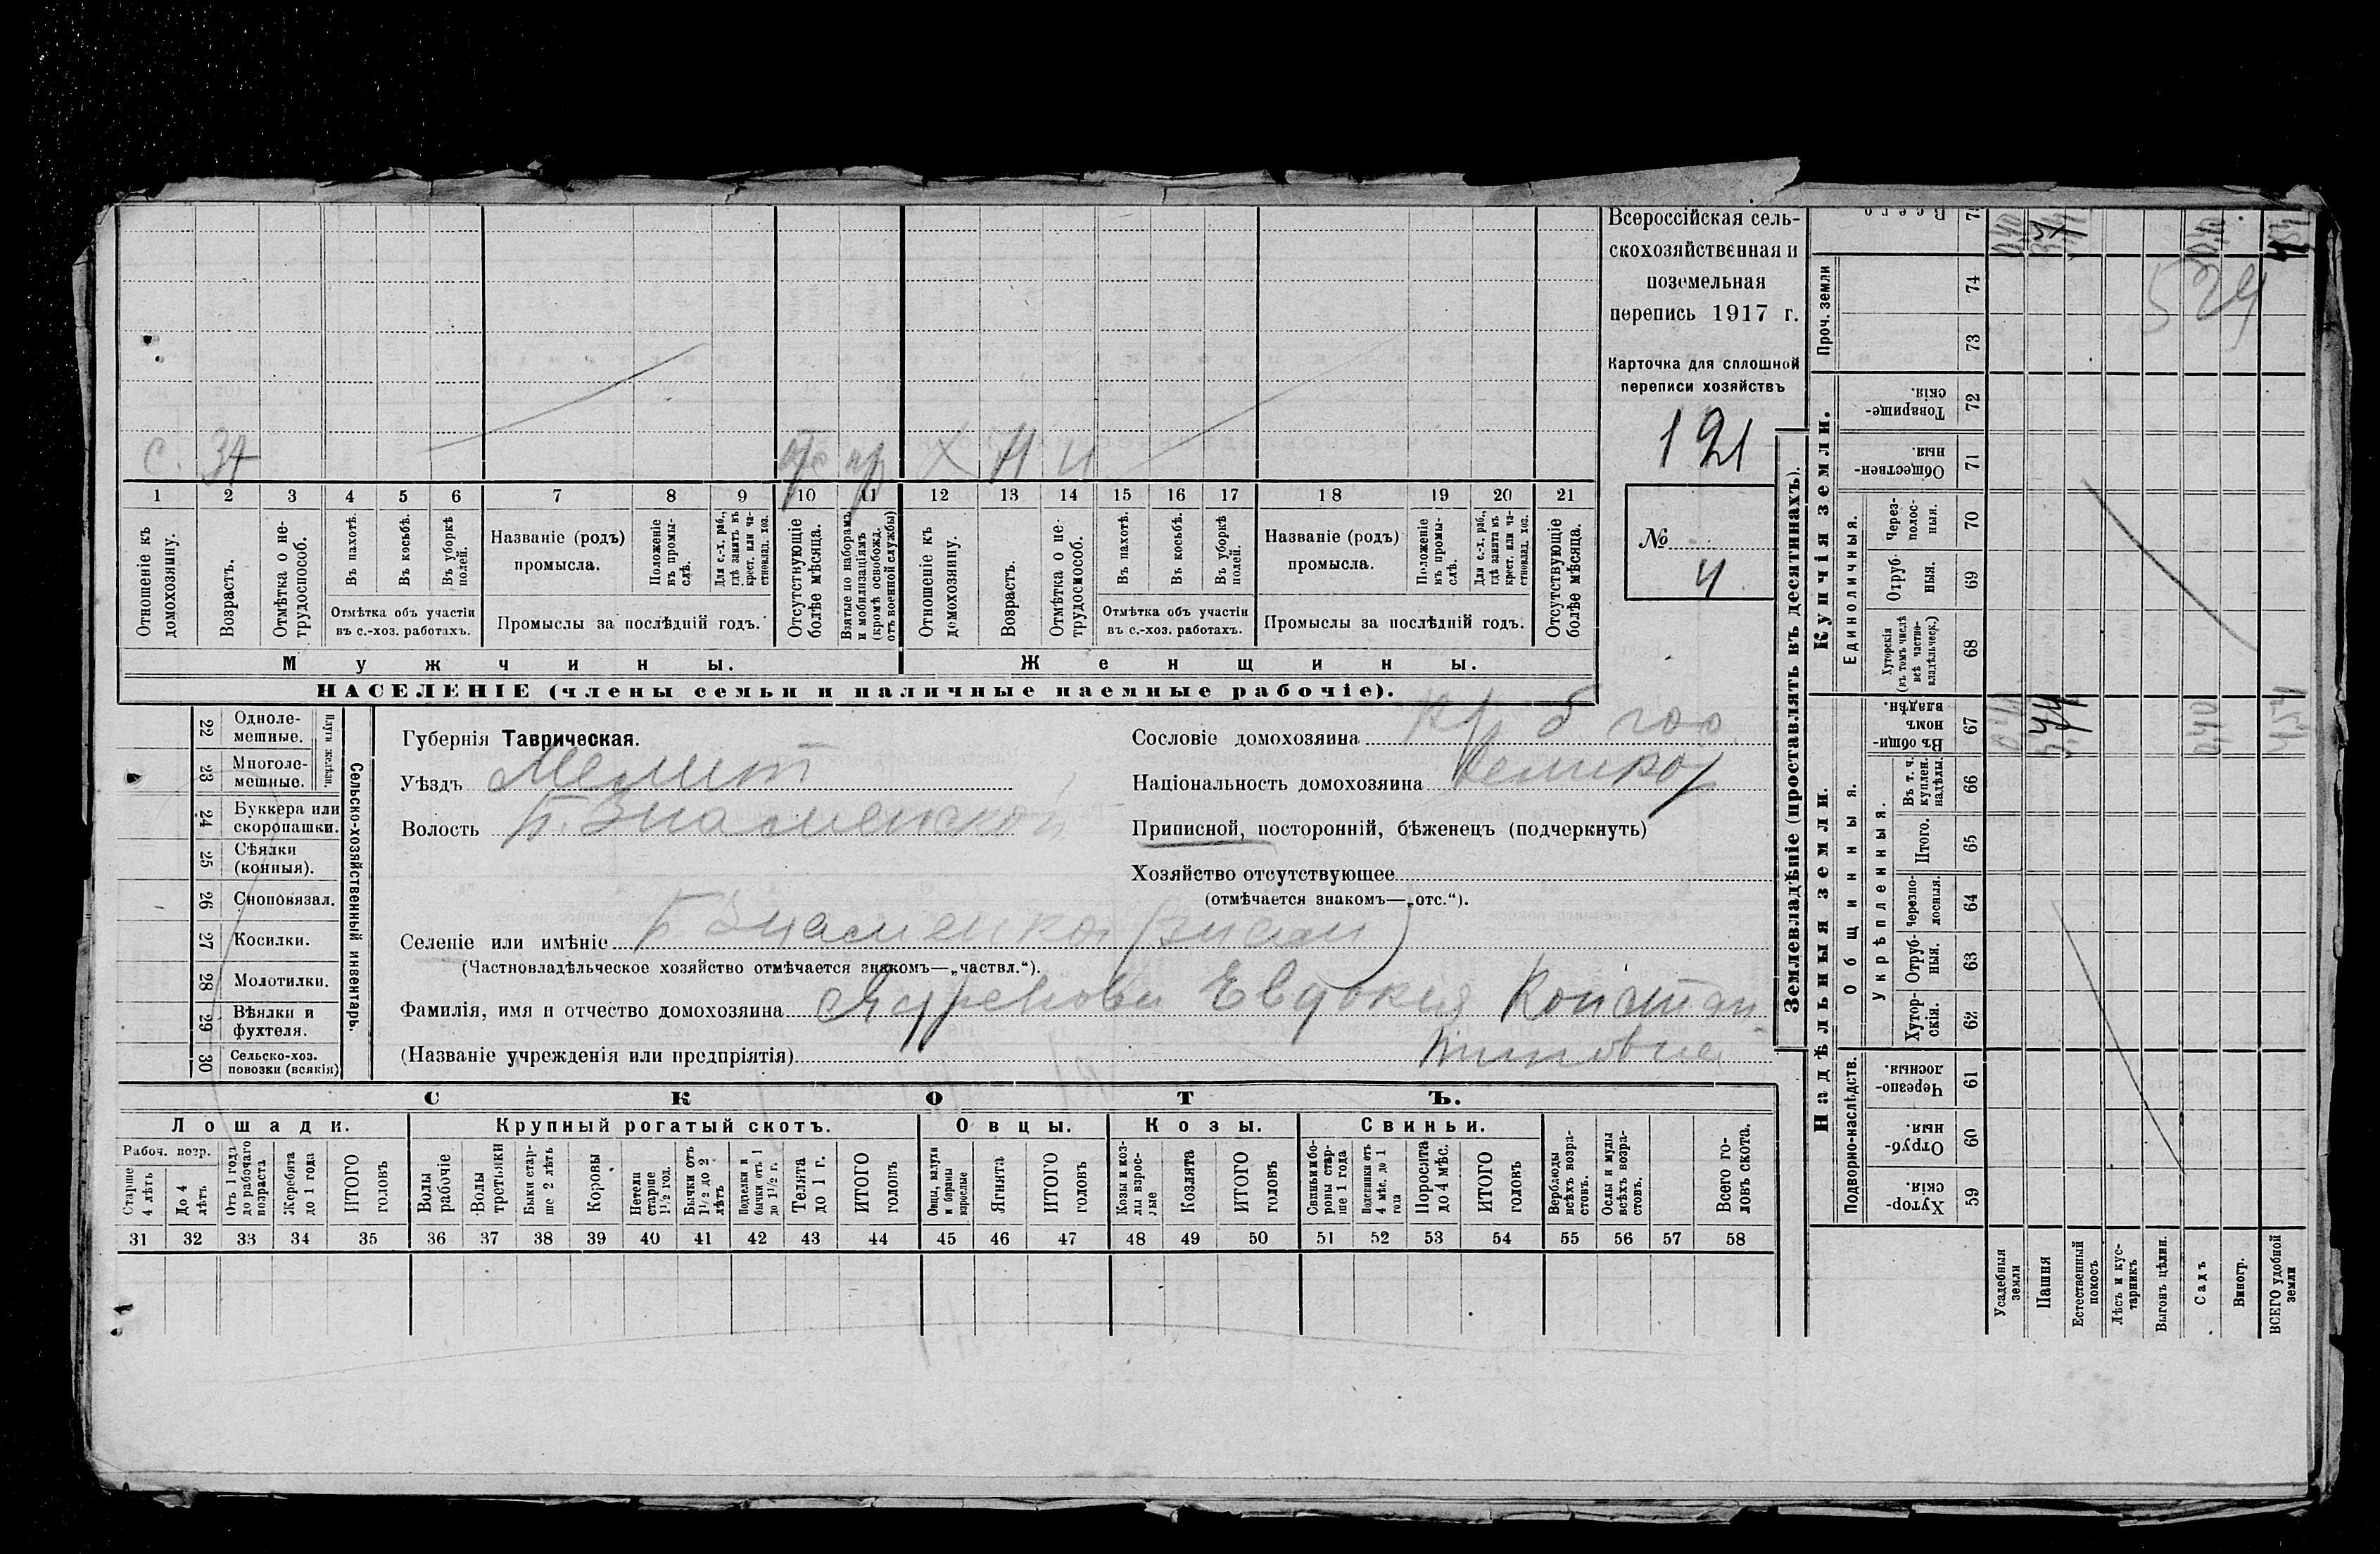 Всероссійская сель-
скохозяйственная и
поземельная
перепись 1917 г.
Карточка для сплошной
переписи хозяйствъ
121
№
4
с. 34
1 2 3 4 5 6 7 8 9 10 11 12 13 14 15 16 17 18 19 20 21
Отношеніе къ домохозяину.
Возрастъ.
Отмѣтка о не-трудоспособ.
Въ пахотѣ.
Въ косьбѣ.
Въ уборкѣ полей.
Отмѣтка объ участіи
въ с.-хоз. работахъ.
Названіе (родъ)
промысла.
Положеніе въ промы-слѣ.
Для с.-х. раб., гдѣ занятъ въ крест. или ча-стновлад. хоз.
Промыслы за послѣдній годъ.
Отсутствующіе болѣе мѣсяца.
Взятые по наборамъ и мобилизаціямъ (кромѣ освобожд. отъ военной службы)
Отношеніе къ домохозяину.
Возрастъ.
Отмѣтка о не-трудоспособ.
Въ пахотѣ.
Въ косьбѣ.
Въ уборкѣ полей.
Отмѣтка объ участіи
въ с.-хоз. работахъ.
Названіе (родъ)
промысла.
Положеніе въ промы-слѣ.
Для с.-х. раб., гдѣ занята въ крест. или ча-стновлад. хоз.
Промыслы за послѣдній годъ.
Отсутствующіе болѣе мѣсяца.
Мужчины.
Женщины.
НАСЕЛЕНІЕ (члены семьи и наличные наемные рабочіе).
22 Одноле-мешные.
23 Многоле-мешные.
Плуги желѣзн.
24 Буккера или скоропашки.
25 Сѣялки (конныя).
26 Сноповязал.
27 Косилки.
28 Молотилки.
29 Вѣялки и фухтеля.
30 Сельско-хоз. повозки (всякія)
Сельско-хозяйственный инвентарь.
Губернія Таврическая.
Уѣздъ Мелит
Волость Б. Знаменской
Селеніе или имѣніе Б Знаменка
(Частновладѣльческое хозяйство отмѣчается знакомъ—„частвл.“).
Фамилія, имя и отчество домохозяина Евдокия Констан-
(Названіе учрежденія или предпріятія) тиновна
Сословіе домохозяина
Національность домохозяина
Приписной, посторонній, бѣженецъ (подчеркнуть)
Хозяйство отсутствующее
(отмѣчается знакомъ—„отс.“).
СКОТЪ.
Лошади.
Крупный рогатый скотъ.
Овцы.
Козы.
Свиньи.
Рабоч. возр.
Старше 4 лѣтъ
До 4 лѣтъ
Отъ 1 года до рабочаго возраста
Жеребята до 1 года
ИТОГО головъ
Волы рабочіе
Волы третьяки
Быки стар-ше 2 лѣтъ
Коровы
Нетели старше 1½ год.
Бычки отъ 1½ до 2 лѣтъ
Подтелки и бычки отъ 1 до 1½ г.
Телята до 1 г.
ИТОГО головъ
Овцы, валухи и бараны взрослые
Ягнята
ИТОГО головъ
Козы и коз-лы взрос-лые
Козлята
ИТОГО головъ
Свиньи и бо-ровы стар-ше 1 года
Подсвинки отъ 4 мѣс. до 1 года
Поросята до 4 мѣс.
ИТОГО головъ
Верблюды всѣхъ возра-стовъ.
Ослы и мулы всѣхъ возра-стовъ.
Всего го-ловъ скота.
31 32 33 34 35 36 37 38 39 40 41 42 43 44 45 46 47 48 49 50 51 52 53 54 55 56 57 58
Землевладѣніе (проставлять въ десятинахъ).
Всего 75
Проч. земли
74
73
Купчія земли.
Товарище-скія. 72
Обществен-ныя. 71
Единоличныя.
Через-полос-ныя. 70
Отруб-ныя. 69
Хуторскія (въ томъ числѣ всѣ частно-владѣльческ.) 68
Надѣльныя земли.
Общинныя.
Въ общин-номъ владѣн. 67
Укрѣпленныя.
Въ т. ч. куплен. надѣлы. 66
Итого. 65
Черезпо-лосныя. 64
Отруб-ныя. 63
Хутор-скія. 62
Подворно-наслѣдств.
Черезпо-лосныя. 61
Отруб-ныя. 60
Хутор-скія. 59
Усадебныя земли
Пашня
Естественный покосъ
Лѣсъ и кус-тарникъ
Выгонъ цѣлин.
Садъ
Виногр.
ВСЕГО удобной земли